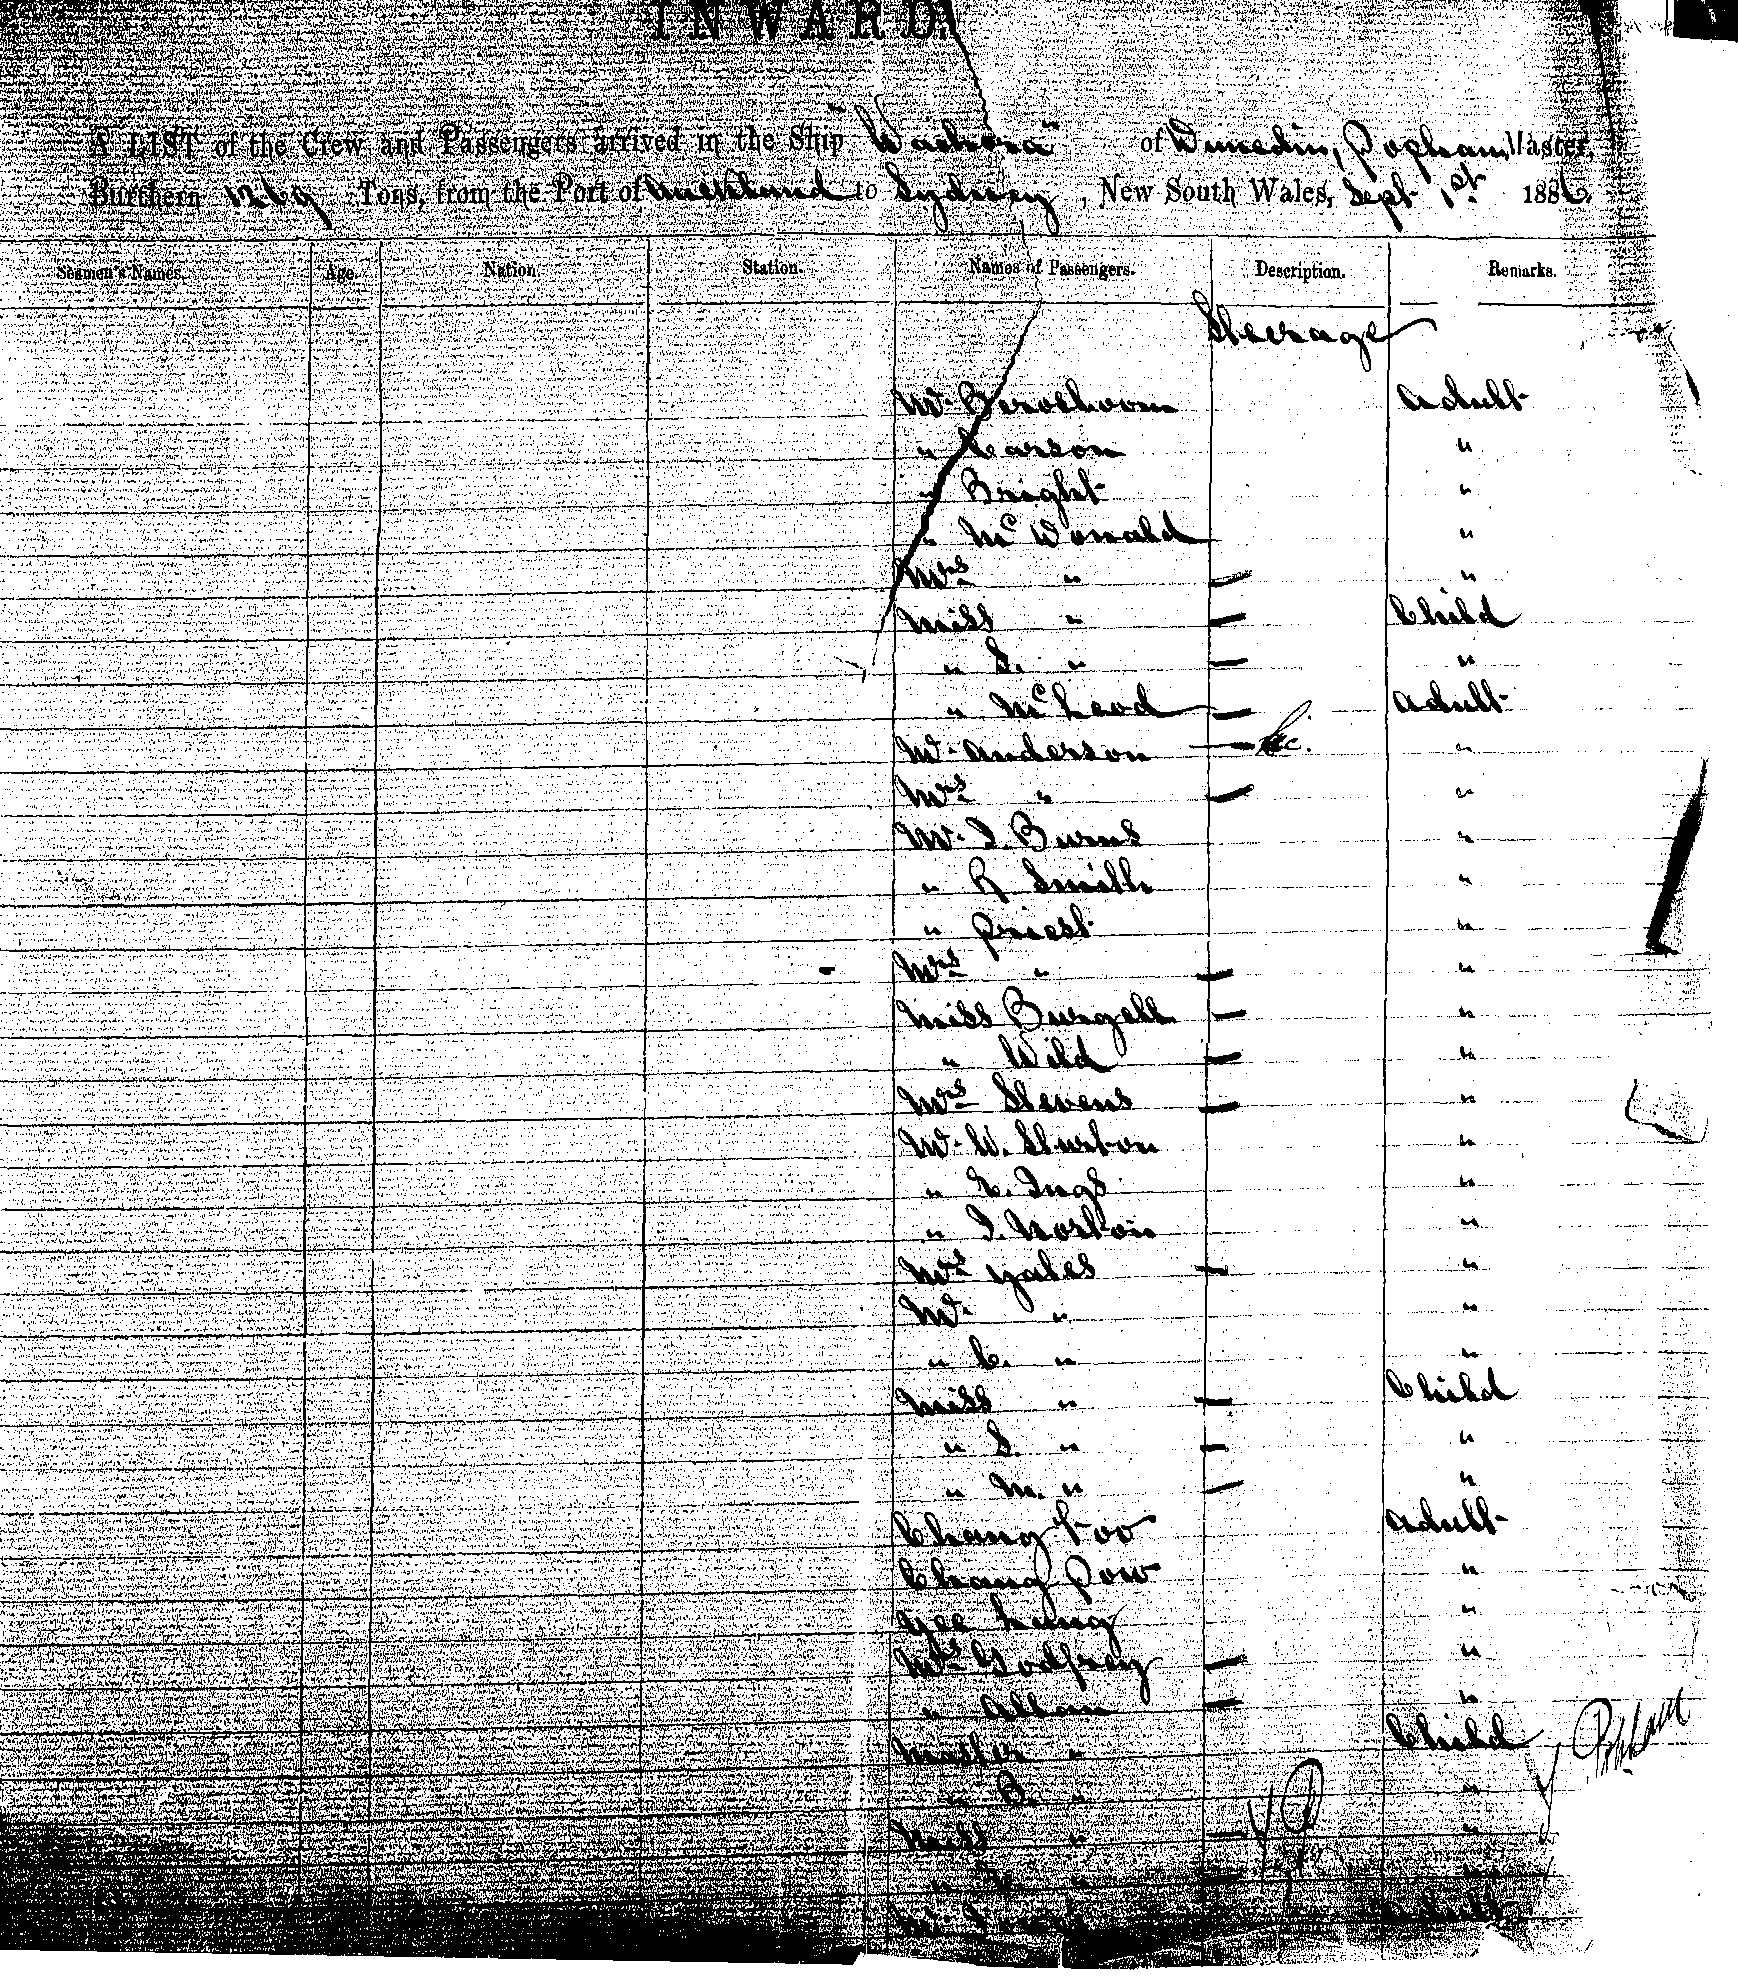 INWARD.
A LIST of the Crew and Passengers arrived in the Ship "Waihora" of Dunedin, Popham, Master,
Burthern 1269 Tons, from the Port of Auckland to Sydney, New South Wales, Sept 1st 1886.
Seamen's Names. Age. Nation. Station. Names of Passengers. Description. Remarks.
Steerage
Mr. Adult
" Carson "
" Bright "
" McDonald "
Mrs " — "
Miss " — Child
" S. " — "
" McLeod — Adult
Mr. Anderson — "
Mrs " — "
Mr. J. Burns "
" R Smith "
" Priest "
Mrs " — "
Miss Burgell — "
" Wild — "
Mrs Stevens — "
Mr. W. Sturton "
" E. Ings "
" J. Norton "
Mrs Yates — "
Mr. " "
" C. " "
Miss " — Child
" S. " — "
" M. " — "
Chang Foo Adult
Chang Pow "
Yee Lung "
Mrs Godfrey — "
" Allan — "
Master " Child
" B. " "
Miss " — "
" " — "
Mr. Adult
Popham